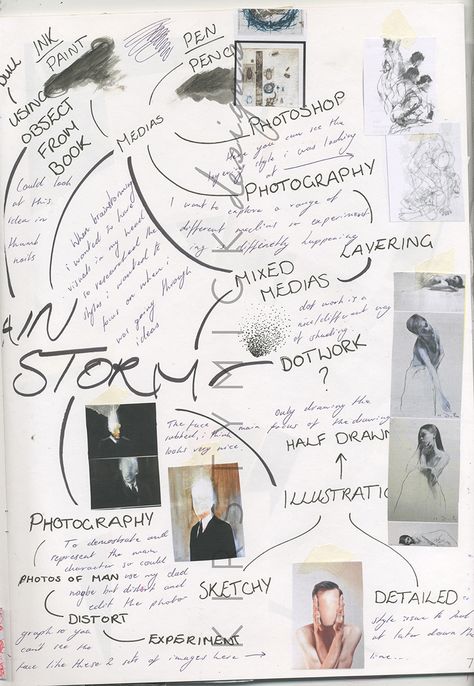 INK
PAINT
PEN
PENCIL
USING
OBJECT
FROM
BOOK
MEDIAS
PHOTOSHOP
Here you can see the
style i was looking
at
PHOTOGRAPHY
Could look
at this
idea in
thumb
nails
When brainstorming
i wanted to have
visuals in my head
so researched the
styles i wanted to
focus on when i
was going through
ideas
I want to explore a range of
different
experiment
differently
LAYERING
MIXED
MEDIAS
dot work is a
nice/different way
of shading
AIN
STORM
DOTWORK
?
The face
rubbed, i think
looks very nice.
Only drawing the
main focus of the drawing
HALF DRAWN
ILLUSTRATI
PHOTOGRAPHY
To demostrate and
represent the main
character so could
PHOTOS OF MAN use my dad
maybe but distort and
edit the photo
DISTORT
graph so you
can't see the
EXPERIMENT
face like these 2 sets of images here
SKETCHY
DETAILED
style
at later down
line...
KATYMICK design